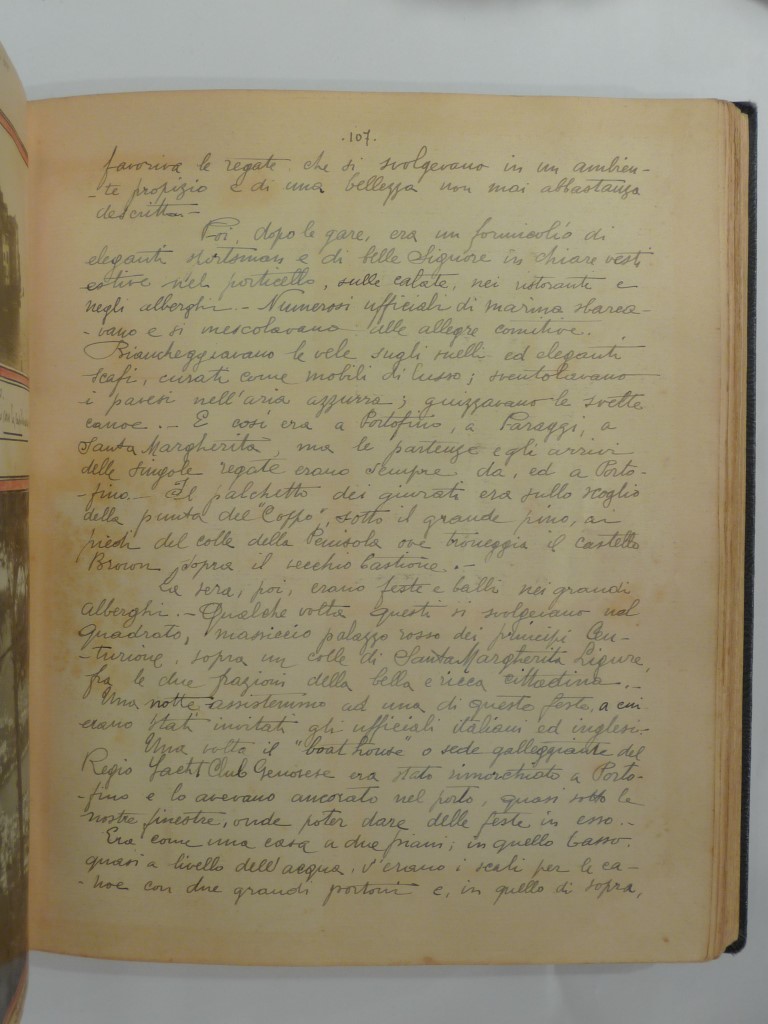 .107.
favoriva le regate che si svolgevano in un ambien-
-te propizio e di una bellezza non mai abbastanza
descritta.-
Poi, dopo le gare, era un formicolio di
eleganti sportsman e di belle Signore in chiare vesti
estive nel porticello, sulle calate, nei ristorante e
negli alberghi.- Numerosi ufficiali di marina sbarca-
-vano e si mescolavano alle allegre comitive.
Biancheggiavano le vele sugli snelli ed eleganti
scafi, curati come mobili di lusso; sventolavano
i pavesi nell'aria azzurra; guizzavano le svelte
canoe.- E così era a Portofino, a Paraggi, a
Santa Margherita, ma le partenze e gli arrivi
delle singole regate erano sempre da, ed a Porto-
-fino.- Il palchetto dei giurati era sullo scoglio
della punta del "Coppo", sotto il grande pino, ai
piedi del colle della Penisola ove troneggia il castello
Brown sopra il vecchio bastione.-
La sera, poi, erano feste e balli nei grandi
alberghi.- Qualche volta questi si svolgevano nel
quadrato, massiccio palazzo rosso dei principi Cen-
-turione, sopra un colle di Santa Margherita Ligure,
fra le due frazioni della bella e ricca cittadina.-
Una notte assistemmo ad una di queste feste, a cui
erano stati invitati gli ufficiali italiani ed inglesi.-
Una volta il "boat house" o sede galleggiante del
Regio Yacht Club Genovese era stato rimorchiato a Porto-
-fino e lo avevano ancorato nel porto, quasi sotto le
nostre finestre, onde poter dare delle feste in esso.-
Era come una casa a due piani; in quello basso.
quasi a livello dell'acqua, v'erano i scali per le ca-
-noe con due grandi portoni e, in quello di sopra,